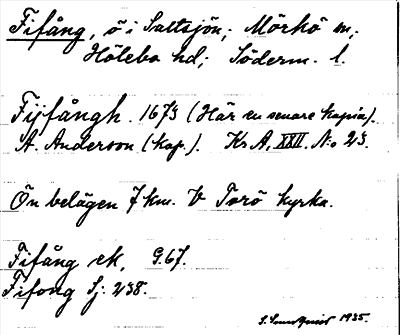 Fifång, ö i Saltsjön; Mörkö sn;
Hölebo hd; Söderm. l.
Fijfångh. 1673 (Här en senare kopia).
A. Anderson (kop.). Kr A, XXII. No 23.
Ön belägen 7 km. V Torö kyrka.
Fifång ek, G.67.
Fifong Sj: 238.
1935.